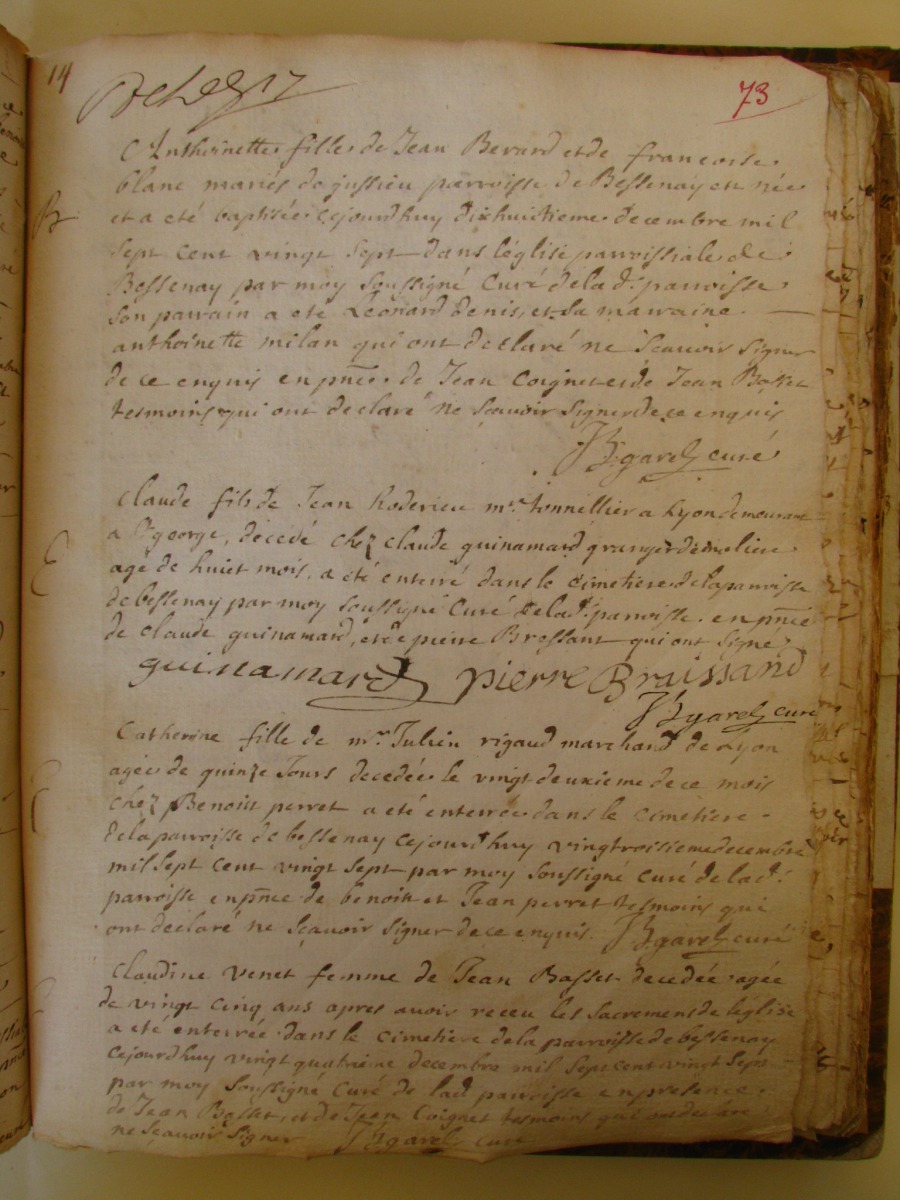 14
73
Anthoinette fille de Jean Berard et de francoise
blanc mariés de jussieu parroisse de Bessenay est née
B et a eté baptisée cejourdhuy dixhuitieme decembre mil
sept cent vingt sept dans léglise parroissiale de
Bessenay par moy soussigné Curé de lad. parroisse
son parrain a eté Léonard denis, et sa marraine
anthoinette milan qui ont declaré ne scavoir signer
de ce enquis en pnce de Jean Coignet et de Jean Basset
tesmoins qui ont declaré ne scavoir signer de ce enquis
JB garel curé
Claude fils de Jean Roderieu mr. tonnellier a Lyon demeurant
a St george, decedé chez claude guinamard granger de
agé de huict mois, a eté enterré dans le cimetiere de la parroisse
de bessenay par moy soussigné Curé de lad. parroisse en pnce
de claude guinamard, et de pierre Bressant qui ont signé
guinamard pierre Braissand
JB garel curé
Catherine fille de mr. Julien rigaud marchand de Lyon
agée de quinze Jours decedée le vingt deuxieme de ce mois
chez Benoist perret a eté enterrée dans le cimetiere
de la parroisse de bessenay cejourdhuy vingtroisieme decembre
mil sept cent vingt sept par moy soussigné curé de lad.
parroisse en pnce de benoist et Jean perret tesmoins qui
ont declaré ne scavoir signer de ce enquis. JB garel curé
Claudine Venet femme de Jean Basset decedée agée
de vingt cinq ans apres avoir receu les sacremens de léglise
a eté enterrée dans le cimetiere de la parroisse de bessenay
cejourdhuy vingt quatrieme decembre mil sept cent vingt sept
par moy soussigné Curé de lad parroisse en presence
de Jean Basset, et de Jean Coignet tesmoins qui ont declaré
ne scavoir signer JB garel curé